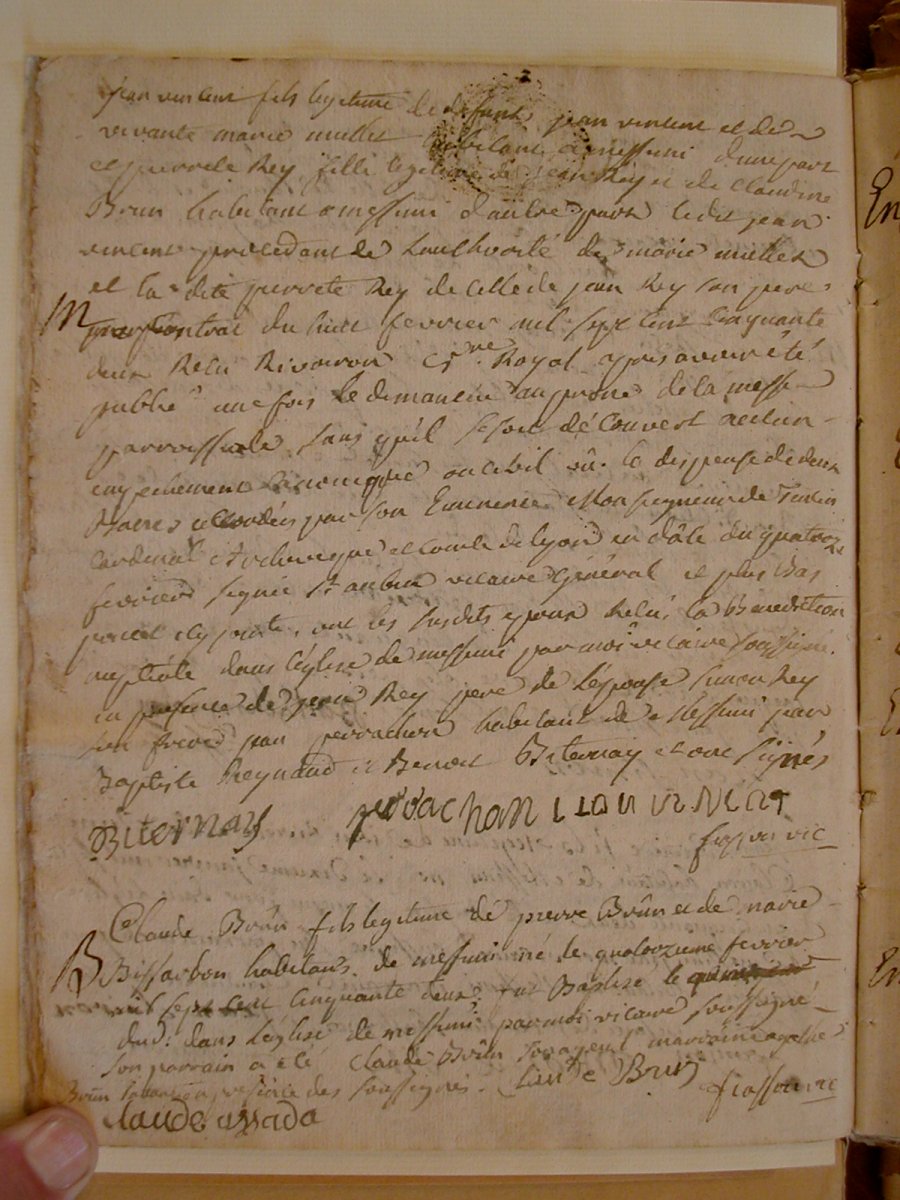 jean vincent fils legitime de defunt jean vincent et de
vivante marie mullet habitant a messimi d'une part
et pierrete Rey fille legitime de jean Rey et de Claudine
Brun habitant a messimi d'autre part ledit jean
vincent procedant de l'authorité de marie mullet
et la dite pierrete Rey de celle de jean Rey son pere
M
contrat du huit fevrier mil sept cent cinquante
deux Relu Royal apres avoir été
publié une fois le dimanche au prone de la messe
parroissiale sans qu'il se soit découvert aucun
empechement canonique ou civil vû le dispense de deux
accordées par son Eminence Monseigneur de Tencin
Cardinal Archeveque et comte de lyon en dâte du quatorze
fevrier signée St aubin vicaire Général et plus bas
ont les susdits epoux Relu la Benediction
nuptiale dans l'église de messimi par moi vicaire soussigné
en presence de jean Rey pere de l'epouse simon Rey
son frere jean perrachon habitant de Messimi jean
Baptiste Reynaud et Benoit Biternay et ont signés
Biternay perrachon
vic
Claude Brûn fils legitime de pierre Brûn et de marie
B Bissardon habitans de messimi né le quatorzieme fevrier
mil sept cent cinquante deux fut Baptise le
dud. dans l'église de messimi par moi vicaire soussigné
son parrain a eté Claude Brûn marraine
Brûn presence des soussignés. Brun
claude